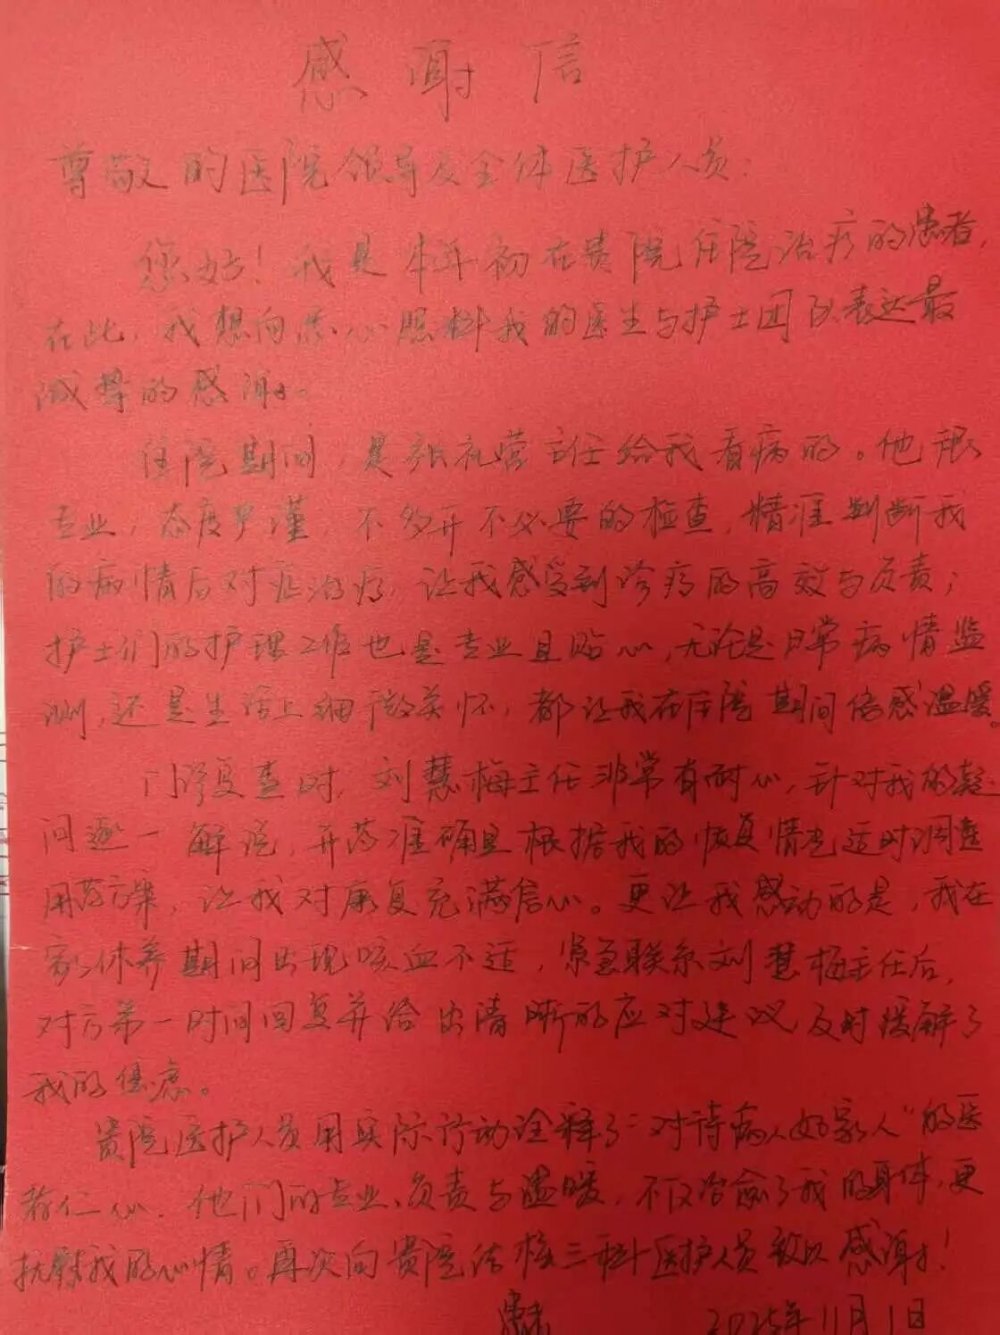 感谢信
尊敬的医院领导及全体医护人员：
您好！我是本年初在贵院住院治疗的患者，
在此，我想向悉心照料我的医生与护士团队表达最
诚挚的感谢。
住院期间，是张在营主任给我看病的。他很
专业，态度严谨，不多开不必要的检查，精准判断我
的病情后对症治疗，让我感受到诊疗的高效与负责；
护士们的护理工作也是专业且贴心，无论是日常病情监
测，还是生活上细微关怀，都让我在住院期间倍感温暖。
门诊复查时，刘慧梅主任非常有耐心，针对我的疑
问逐一解说，开药准确且根据我的恢复情况适时调整
用药方案，让我对康复充满信心。更让我感动的是，我在
家休养期间出现咳血不适，紧急联系刘慧梅主任后，
对方第一时间回复并给出清晰的应对建议及时缓解了
我的焦虑。
贵院医护人员用实际行动诠释了“对待病人如家人”的医
者仁心，他们的专业、负责与温暖，不仅治愈了我的身体，更
抚慰我的心情。再次向贵院结核三科医护人员致以感谢！
2025年11月1日